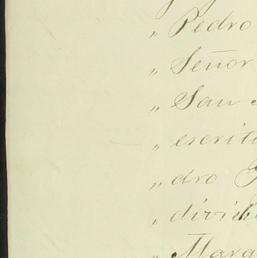 „ Pedro
„ Señor
„ San
„ escrit
„ dro
„ divid
„ Marg